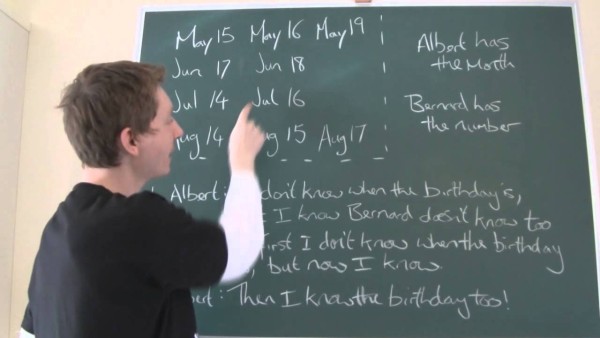 May 15 May 16 May 19
Jun 17 Jun 18
Jul 14 Jul 16
Aug 14 Aug 15 Aug 17
Albert has
the Month
Bernard has
the number
Albert : I don't know when the birthday is,
but I know Bernard doesn't know too
First I don't know when the birthday
, but now I know
Albert : Then I know the birthday too!